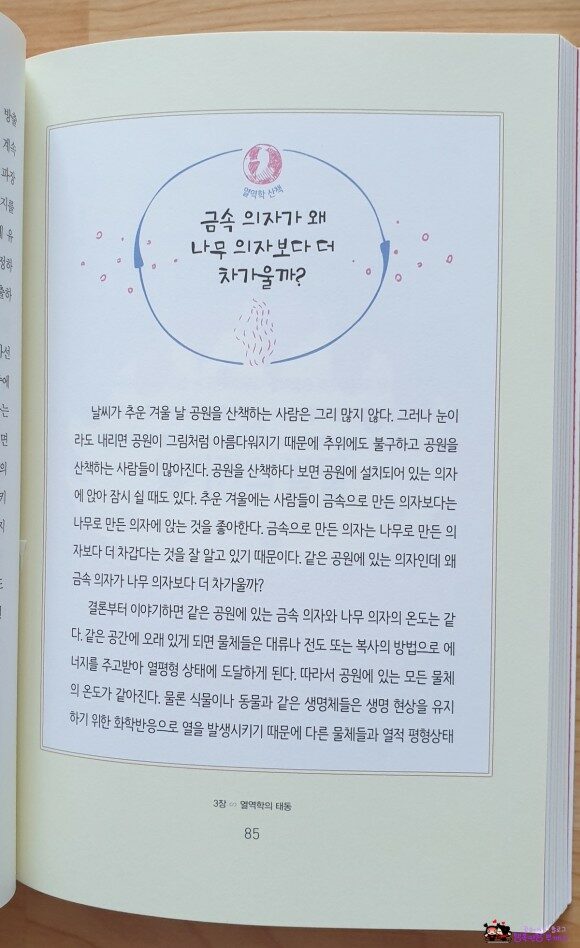 방출
계속
파장
지를
유
정하
출하
에
는
면
의
키
지
열역학 산책
금속 의자가 왜
나무 의자보다 더
차가울까?
날씨가 추운 겨울 날 공원을 산책하는 사람은 그리 많지 않다. 그러나 눈이
라도 내리면 공원이 그림처럼 아름다워지기 때문에 추위에도 불구하고 공원을
산책하는 사람들이 많아진다. 공원을 산책하다 보면 공원에 설치되어 있는 의자
에 앉아 잠시 쉴 때도 있다. 추운 겨울에는 사람들이 금속으로 만든 의자보다는
나무로 만든 의자에 앉는 것을 좋아한다. 금속으로 만든 의자는 나무로 만든 의
자보다 더 차갑다는 것을 잘 알고 있기 때문이다. 같은 공원에 있는 의자인데 왜
금속 의자가 나무 의자보다 더 차가울까?
결론부터 이야기하면 같은 공원에 있는 금속 의자와 나무 의자의 온도는 같
다. 같은 공간에 오래 있게 되면 물체들은 대류나 전도 또는 복사의 방법으로 에
너지를 주고받아 열평형 상태에 도달하게 된다. 따라서 공원에 있는 모든 물체
의 온도가 같아진다. 물론 식물이나 동물과 같은 생명체들은 생명 현상을 유지
하기 위한 화학반응으로 열을 발생시키기 때문에 다른 물체들과 열적 평형상태
3장 ∽ 열역학의 태동
85